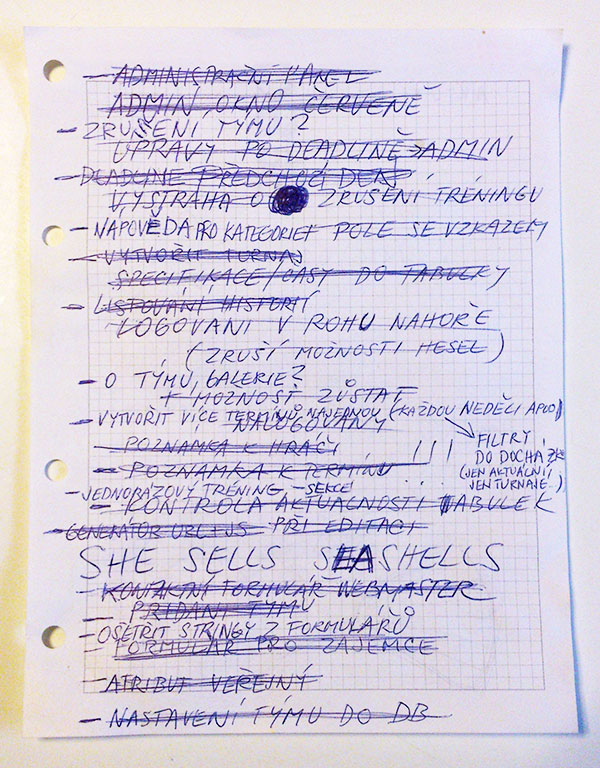 - ADMINISTRAČNÍ PANEL
ADMIN OKNO ČERVENĚ
- ZRUŠENÍ TÝMU?
ÚPRAVY PO DEADLINĚ → ADMIN
- DEADLINE PŘEDCHOZÍ DEN
VÝSTRAHA O ZRUŠENÍ TRÉNINGU
- NÁPOVĚDA PRO KATEGORIE POLE SE VZKAZEM
- VYTVOŘIT TURNAJ
SPECIFIKACE/ČASY DO TABULKY
- LISTOVÁNÍ HISTORIÍ
LOGOVÁNÍ V ROHU NAHOŘE
(ZRUŠÍ MOŽNOSTI HESEL)
- O TÝMU, GALERIE?
+ MOŽNOST ZŮSTAT
- VYTVOŘIT VÍCE TERMÍNŮ NAJEDNOU (KAŽDOU NEDĚLI APOD)
NALOGOVANÝ
- POZNÁMKA K HRÁČI
FILTRY
DO DOCHÁZKY
- POZNÁMKA K TERMÍNU
(JEN AKTUÁLNÍ,
JEN TURNAJE)
- JEDNORÁZOVÝ TRÉNING - SEKCE
- KONTROLA AKTUÁLNOSTI TABULEK
- GENERÁTOR URL+JS PŘI EDITACI
SHE SELLS SEASHELLS
- KONTAKTNÍ FORMULÁŘ WEBMASTER
- PŘIDÁNÍ TÝMU
- OŠETŘIT STRINGY Z FORMULÁŘŮ
FORMULÁŘ PRO ZÁJEMCE
- ATRIBUT VEŘEJNÝ
- NASTAVENÍ TÝMU DO DB